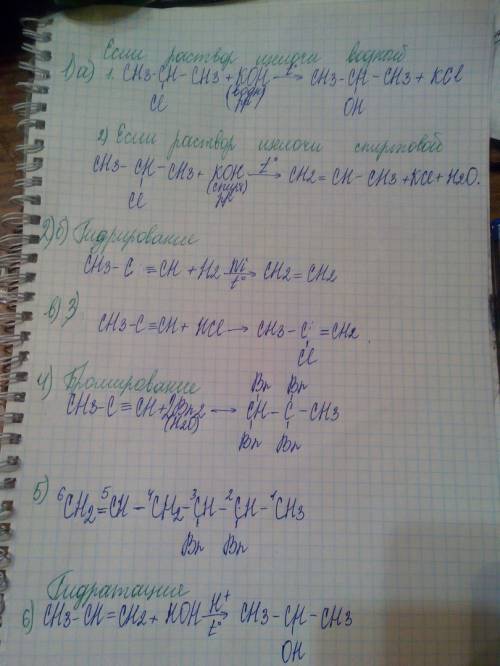 Если раствор щелочи водной
1) а) 1. CH3-CH-CH3 + KOH →t° CH3-CH-CH3 + KCl
Cl (водн р-р) OH
2) Если раствор щелочи спиртовой
CH3-CH-CH3 + KOH →t° CH2=CH-CH3 + KCl + H2O.
Cl (спирт р-р)
2) б) Гидрирование
CH3-C≡CH + H2 →Ni t° CH2=CH2
в) 3)
CH3-C≡CH + HCl → CH3-C=CH2
Cl
4) Бромирование
Br Br
CH3-C≡CH + 2Br2 → CH-C-CH3
(H2O) Br Br
5) 6CH2=5CH-4CH2-3CH-2CH-1CH3
Br Br
Гидратация
6) CH3-CH=CH2 + HOH →H+ t° CH3-CH-CH3
OH